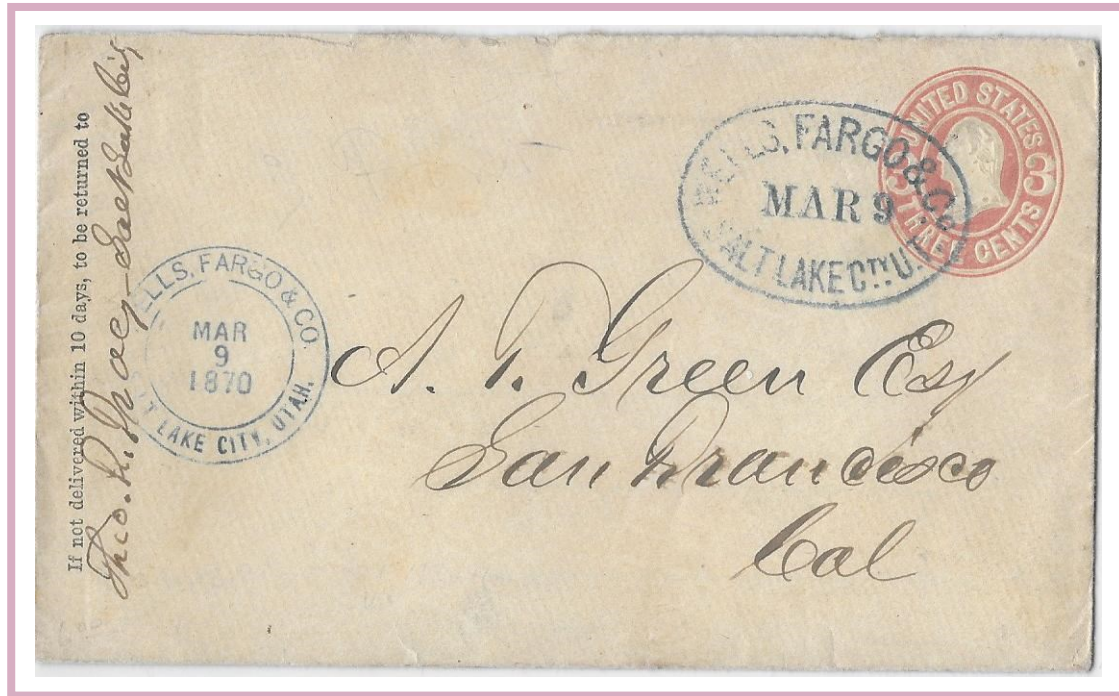 If not delivered within 10 days, to be returned to
Salt Lake City
WELLS, FARGO & CO.
MAR
9
1870
SALT LAKE CITY, UTAH.
WELLS, FARGO & Co
MAR 9
SALT LAKE CTY. U.T.
UNITED STATES
3 3
THREE CENTS
A. T. Green Esq
San Francisco
Cal